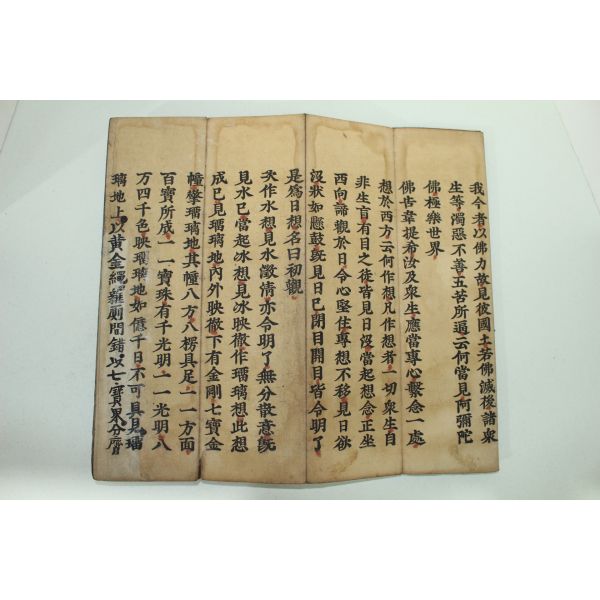 我今者以佛力故見彼國土若佛滅後諸衆
生等濁惡不善五苦所逼云何當見阿彌陀
佛極樂世界
佛告韋提希汝及衆生應當專心繫念一處
想於西方云何作想凡作想者一切衆生自
非生盲有目之徒皆見日沒當起想念正坐
西向諦觀於日令心堅住專想不移見日欲
沒狀如懸鼓旣見日已閉目開目皆令明了
是爲日想名曰初觀
次作水想見水澂淸亦令明了無分散意旣
見水已當起冰想見冰映徹作瑠璃想此想
成已見瑠璃地內外映徹下有金剛七寶金
幢擎瑠璃地其幢八方八楞具足一一方面
百寶所成一一寶珠有千光明一一光明八
万四千色映瑠璃地如億千日不可具見瑠
璃地上以黃金繩雜廁間錯以七寶界分齊